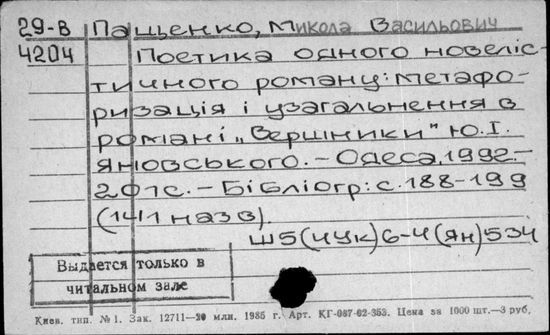 29-В Пащенко, Микола Васильович
4204 Поетика одного новеліс-
тичного роману: метафо-
ризація і узагальнення в
романі „Вершники" Ю.І.
Яновського. – Одеса, 1992. –
201с. – Бібліогр: с. 188-199
(141 назв).
Ш5(4Ук)6-4(Ян)534
Выдается только в
читальном зале
Киев. тип. № 1. Зак. 12711—20 млн. 1985 г. Арт. КГ-087-02-353. Цена за 1000 шт.—3 руб.